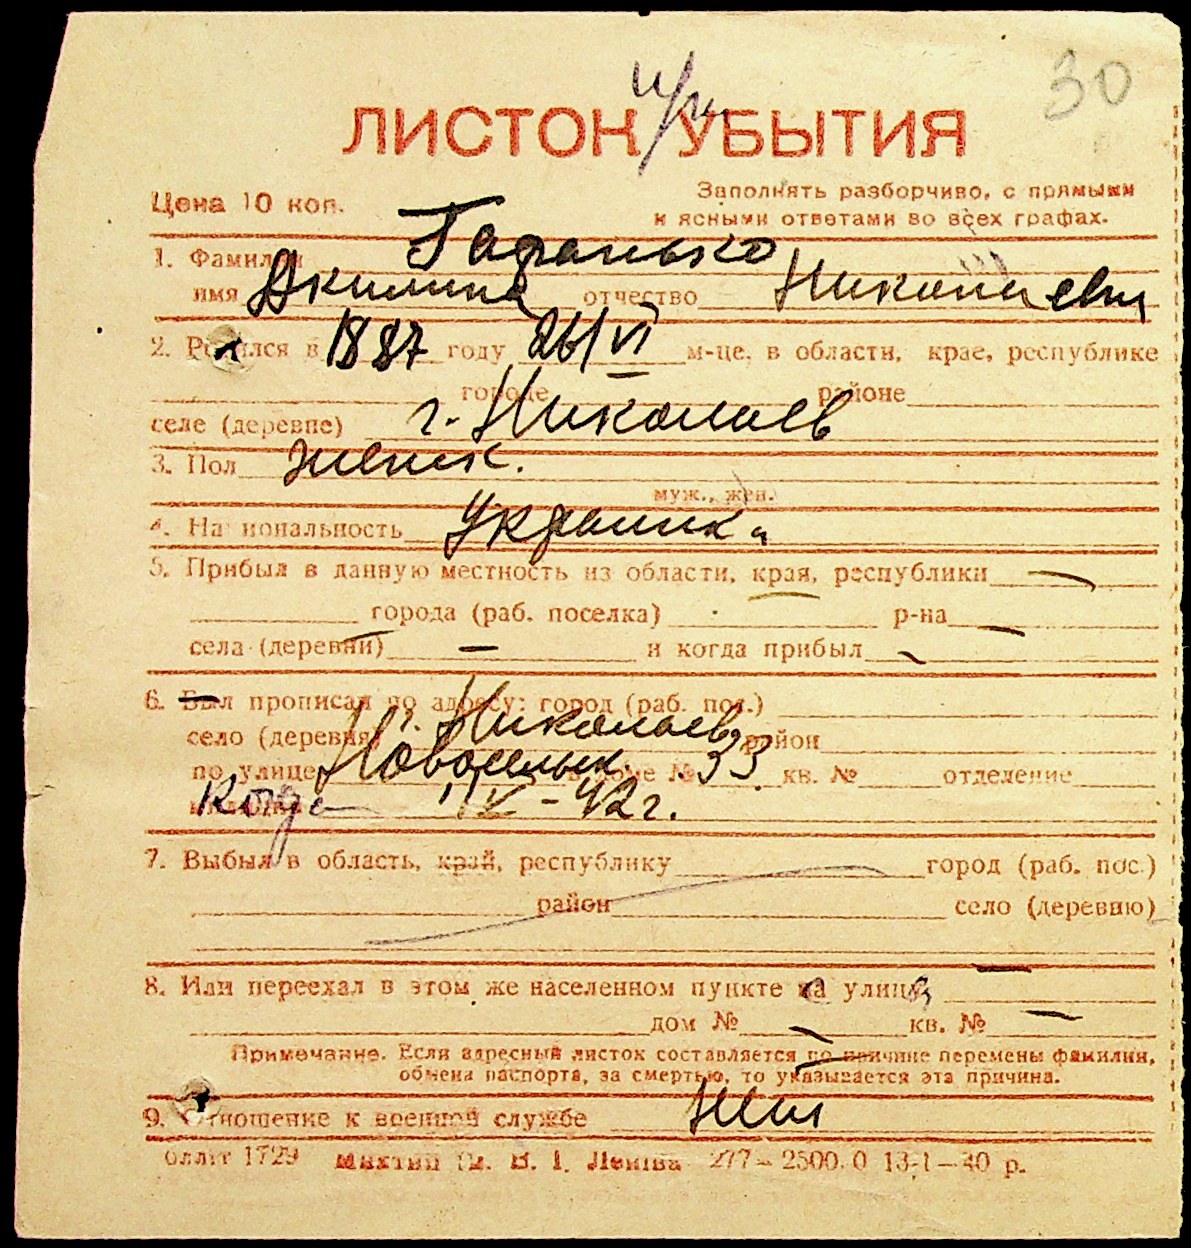 30
ЛИСТОК УБЫТИЯ
Цена 10 коп.
Заполнять разборчиво, с прямыми
и ясными ответами во всех графах.
1. Фамилия Гаранько
имя Акилина отчество Николаевн
2. Родился в 1887 году 26/VI м-це, в области, крае, республике
городе районе
селе (деревне) г. Николаев
3. Пол женск.
муж., жен.
4. Национальность Украинка
5. Прибыл в данную местность из области, края, республики —
города (раб. поселка) р-на —
села (деревни) — и когда прибыл —
6. Был прописан по адресу: город (раб. пос.)
село (деревня) г. Николаев район
по улице Новосельск. в доме № 33 кв. № отделение
Когда IX-42 г.
7. Выбыл в область, край, республику город (раб. пос.)
район село (деревню)
8. Или переехал в этом же населенном пункте на улицу —
дом № — кв. № —
Примечание. Если адресный листок составляется по причине перемены фамилии,
обмена паспорта, за смертью, то указывается эта причина.
9. Отношение к военной службе
блліт 1729 ім. В. І. Леніна 277–2500.0 13-I–40 р.